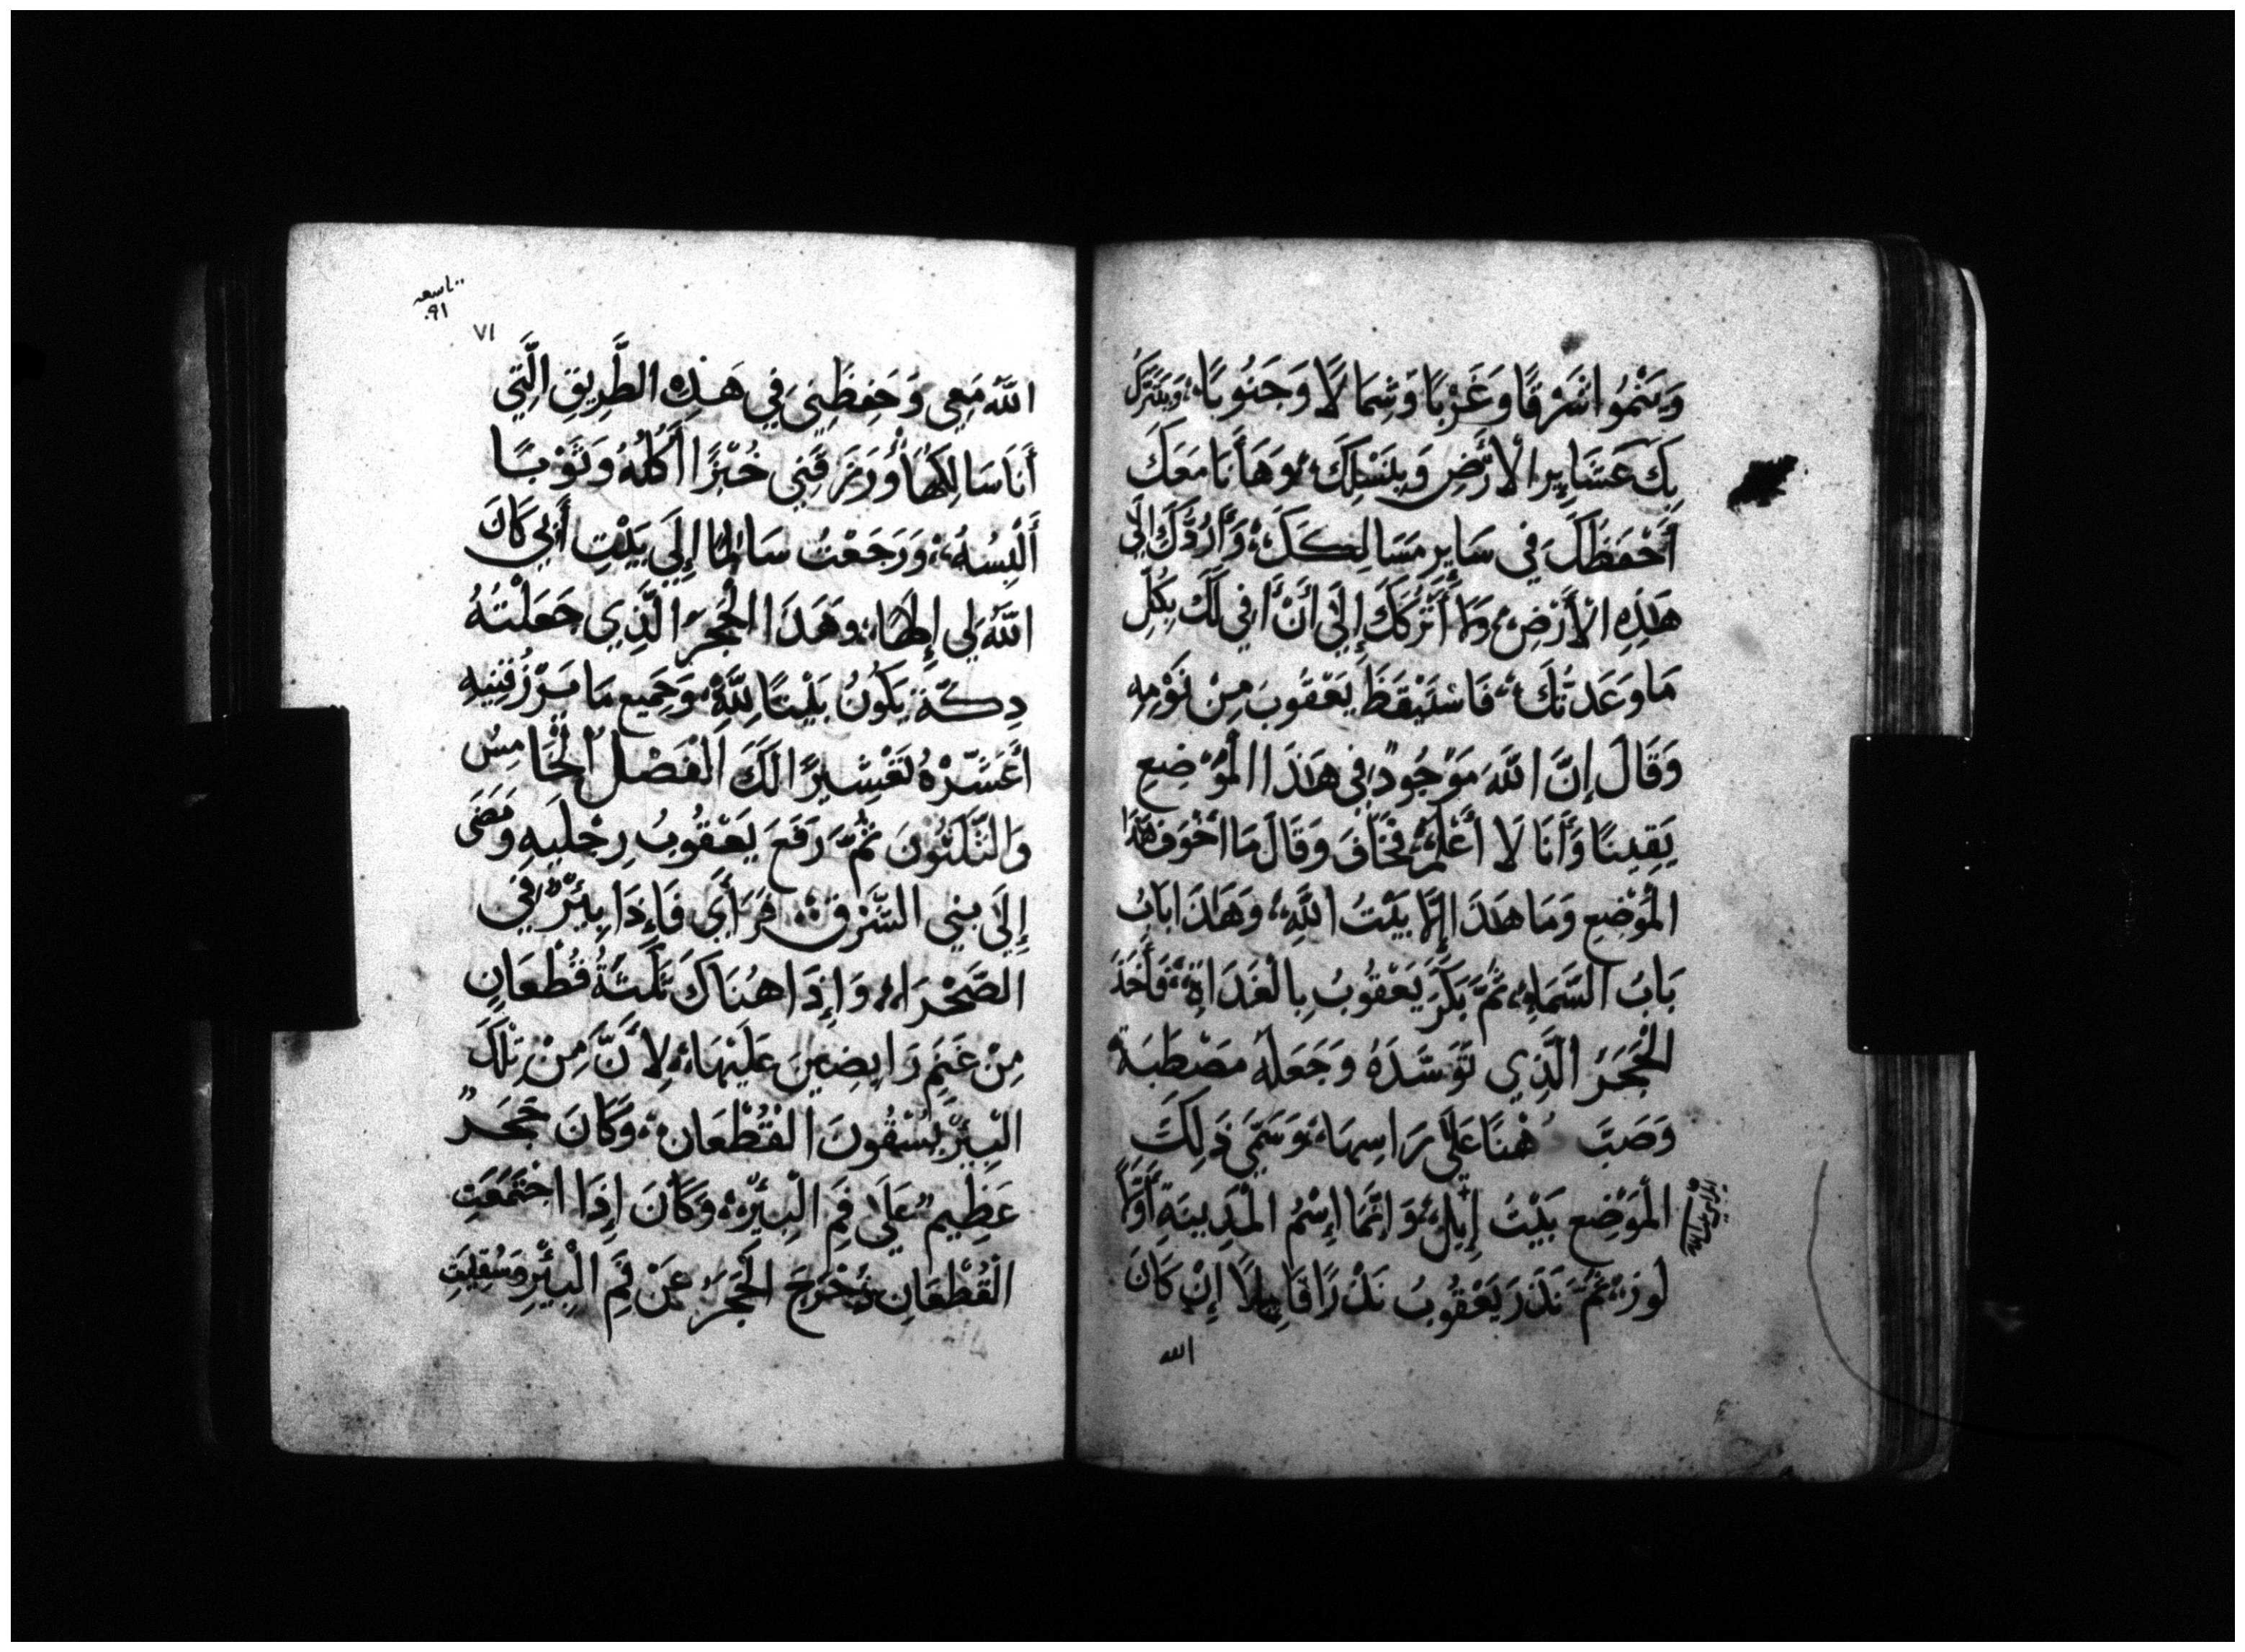 وَيَنْمُوا شَرْقًا وَغَرْبًا وَشِمَالًا وَجَنُوبًا، وَيَتَبَرَّكُ
بِكَ عَشَايِرِ الْأَرْضِ وَبِنَسْلِكَ، وَهَا أَنَا مَعَكَ
أَحْفَظَكَ فِي سَايِرِ مَسَالِكِكَ، وَأَرُدُّكَ إِلَى
هَذِهِ الْأَرْضِ، وَلَا أَتْرُكَكَ إِلَى أَنْ أَفِي لَكَ بِكُلِ
مَا وَعَدتُكَ، فَاسْتَيْقَظَ يَعْقُوبَ مِنْ نَوْمِهِ
وَقَالَ إِنَّ اللَّهَ مَوْجُودٌ فِي هَذَا الْمَوْضِعِ
يَقِينًا وَأَنَا لَا أَعْلَمْ، فَخَافَ وَقَالَ مَا أَخْوَفَ هَذَا
الْمَوْضِعِ وَمَا هَذَا إِلَّا بَيْتُ اللَّهِ، وَهَذَا بَابُ
بَابُ السَّمَاءِ، ثُمَّ بَكَّرَ يَعْقُوبُ بِالْغَدَاةِ، فَأَخَذَ
الْحَجَرَ الَّذِي تَوَسَّدَهُ وَجَعَلَهُ مَصْطَبَة
وَصَبَّ دُهْنًا عَلَى رَاسِهَا، وَسَمَّى ذَلِكَ
الْمَوْضِعِ بَيْتَ إِيلْ، وَإِنَّمَا إِسْمُ الْمَدِينَةِ أَوَّلًا
لَوزَ، ثُمَّ نَذَرَ يَعْقُوبُ نَذْرًا قَايِلًا إِنْ كَانَ
الله
تاسعه
٩١
٧١
اللَّهُ مَعِي وَحَفِظَنِي فِي هَذِهِ الطَّرِيقِ الَّتِي
أَنَا سَالِكُهَا، وَرَزَقَنِي خُبْزًا أَكُلُهُ وَثَوْبًا
أَلْبِسُهُ، وَرَجَعْتُ سَالِمًا إِلَى بَيْتِ أَبِي كَانَ
اللَّهُ لِي إِلَهًا، وَهَذَا الْحَجَرَ الَّذِي جَعَلْتُهُ
دِكَّة يَكُونُ بَيْتًا لِلَّهِ، وَجَمِيعِ مَا يَرْزُقَنِيهِ
أُعَشِّرْهُ تَعْشِيرًا لَكَ الْفَصْلُ الْخَامِسُ
وَالثَّلَثُونَ ثُمَّ رَفَعَ يَعْقُوبُ رِجْلَيهِ وَمَضَى
إِلَى بَنِي الشَّرْقِ، فَرَأَى فَإِذَا بِيئْرٌ فِي
الصَّحْرَاءِ، وَإِذَا هُنَاكَ ثَلَثَةُ قُطْعَانٍ
مِنْ غَنَمٍ رَابِضِينَ عَلَيْهَا، لِأَنَّ مِنْ تِلْكَ
الْبِيئْرِ يُسْقُونَ الْقُطْعَانِ، وَكَانَ حَجَرٌ
عَظِيمٌ عَلَى فَمِ الْبِيئْرِ، وَكَانَ إِذَا اجْتَمَعَتِ
الْقُطْعَانِ دُحْرِجَ الْحَجَرَ عَنْ فَمِ الْبِيئْرِ وَسُقِيَتِ